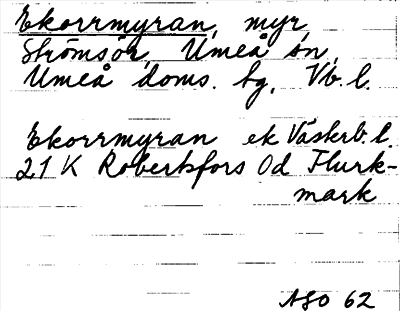 Ekorrmyran, myr,
Strömsör, Umeå sn,
Umeå doms. bg, Vb. l.
Ekorrmyran ek Västerb. l.
21 K Robertsfors Od Flurk-
mark
ASO 62